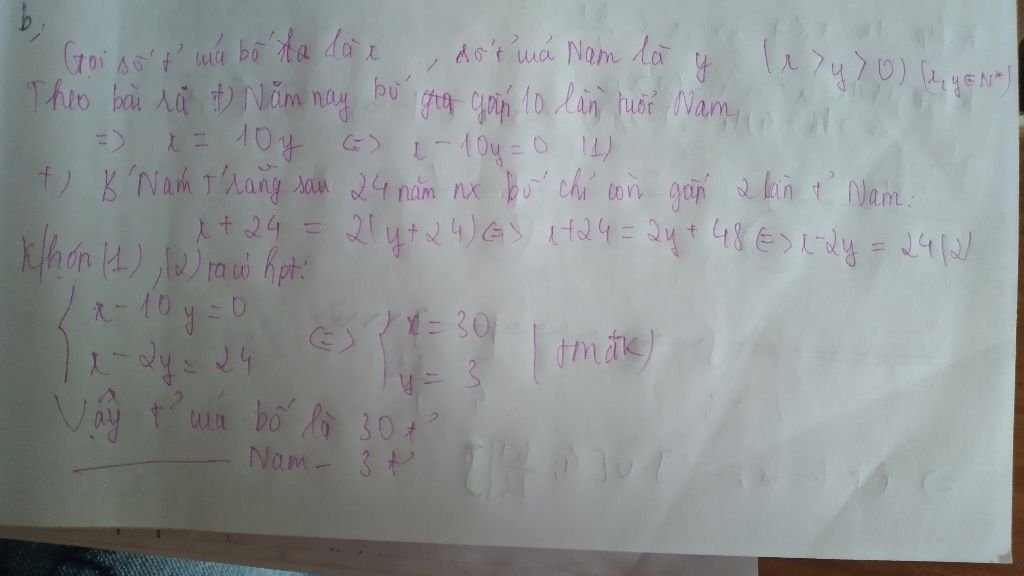 b,
Gọi số t' uả bố là x , số t' uả Nam là y (x > y > 0) (x, y ∈ N*)
Theo bài ra +) Năm nay bố gấp 10 lần tuổi Nam
=> x = 10y <=> x - 10y = 0 (1)
+) B' Nam t' rằng sau 24 năm nx bố chỉ còn gấp 2 lần t' Nam:
x + 24 = 2(y + 24) <=> x + 24 = 2y + 48 <=> x - 2y = 24 (2)
K/hợp (1), (2) ta có hpt:
x - 10y = 0
x - 2y = 24
<=>
x = 30
y = 3
(tmđk)
Vậy t' uả bố là 30 t'
Nam - 3 t'